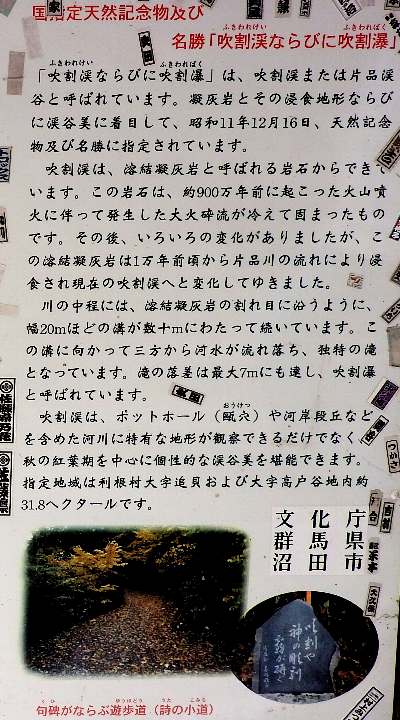 国指定天然記念物及び
ふきわれけい ふきわればく
名勝「吹割渓ならびに吹割瀑」
ふきわれけい ふきわればく
「吹割渓ならびに吹割瀑」は、吹割渓または片品渓
谷と呼ばれています。凝灰岩とその浸食地形ならび
に渓谷美に着目して、昭和11年12月16日、天然記念
物及び名勝に指定されています。
吹割渓は、溶結凝灰岩と呼ばれる岩石からでき
います。この岩石は、約900万年前に起こった火山噴
火に伴って発生した大火砕流が冷えて固まったもの
です。その後、いろいろの変化がありましたが、こ
の溶結凝灰岩は1万年前頃から片品川の流れにより浸
食され現在の吹割渓へと変化してゆきました。
川の中程には、溶結凝灰岩の割れ目に沿うように、
幅20mほどの溝が数十mにわたって続いています。こ
の溝に向かって三方から河水が流れ落ち、独特の滝
となっています。滝の落差は最大7mにも達し、吹割瀑
と呼ばれています。
おうけつ
吹割渓は、ポットホール（甌穴）や河岸段丘など
を含めた河川に特有な地形が観察できるだけでなく、
秋の紅葉期を中心に個性的な渓谷美を堪能できます。
指定地域は利根村大字追貝および大字高戸谷地内約
31.8ヘクタールです。
文化庁
群馬県
沼田市
つかさ
吹割や
神の彫刻
くひ ゆうほどう うた こみち
句碑がならぶ遊歩道（詩の小道）